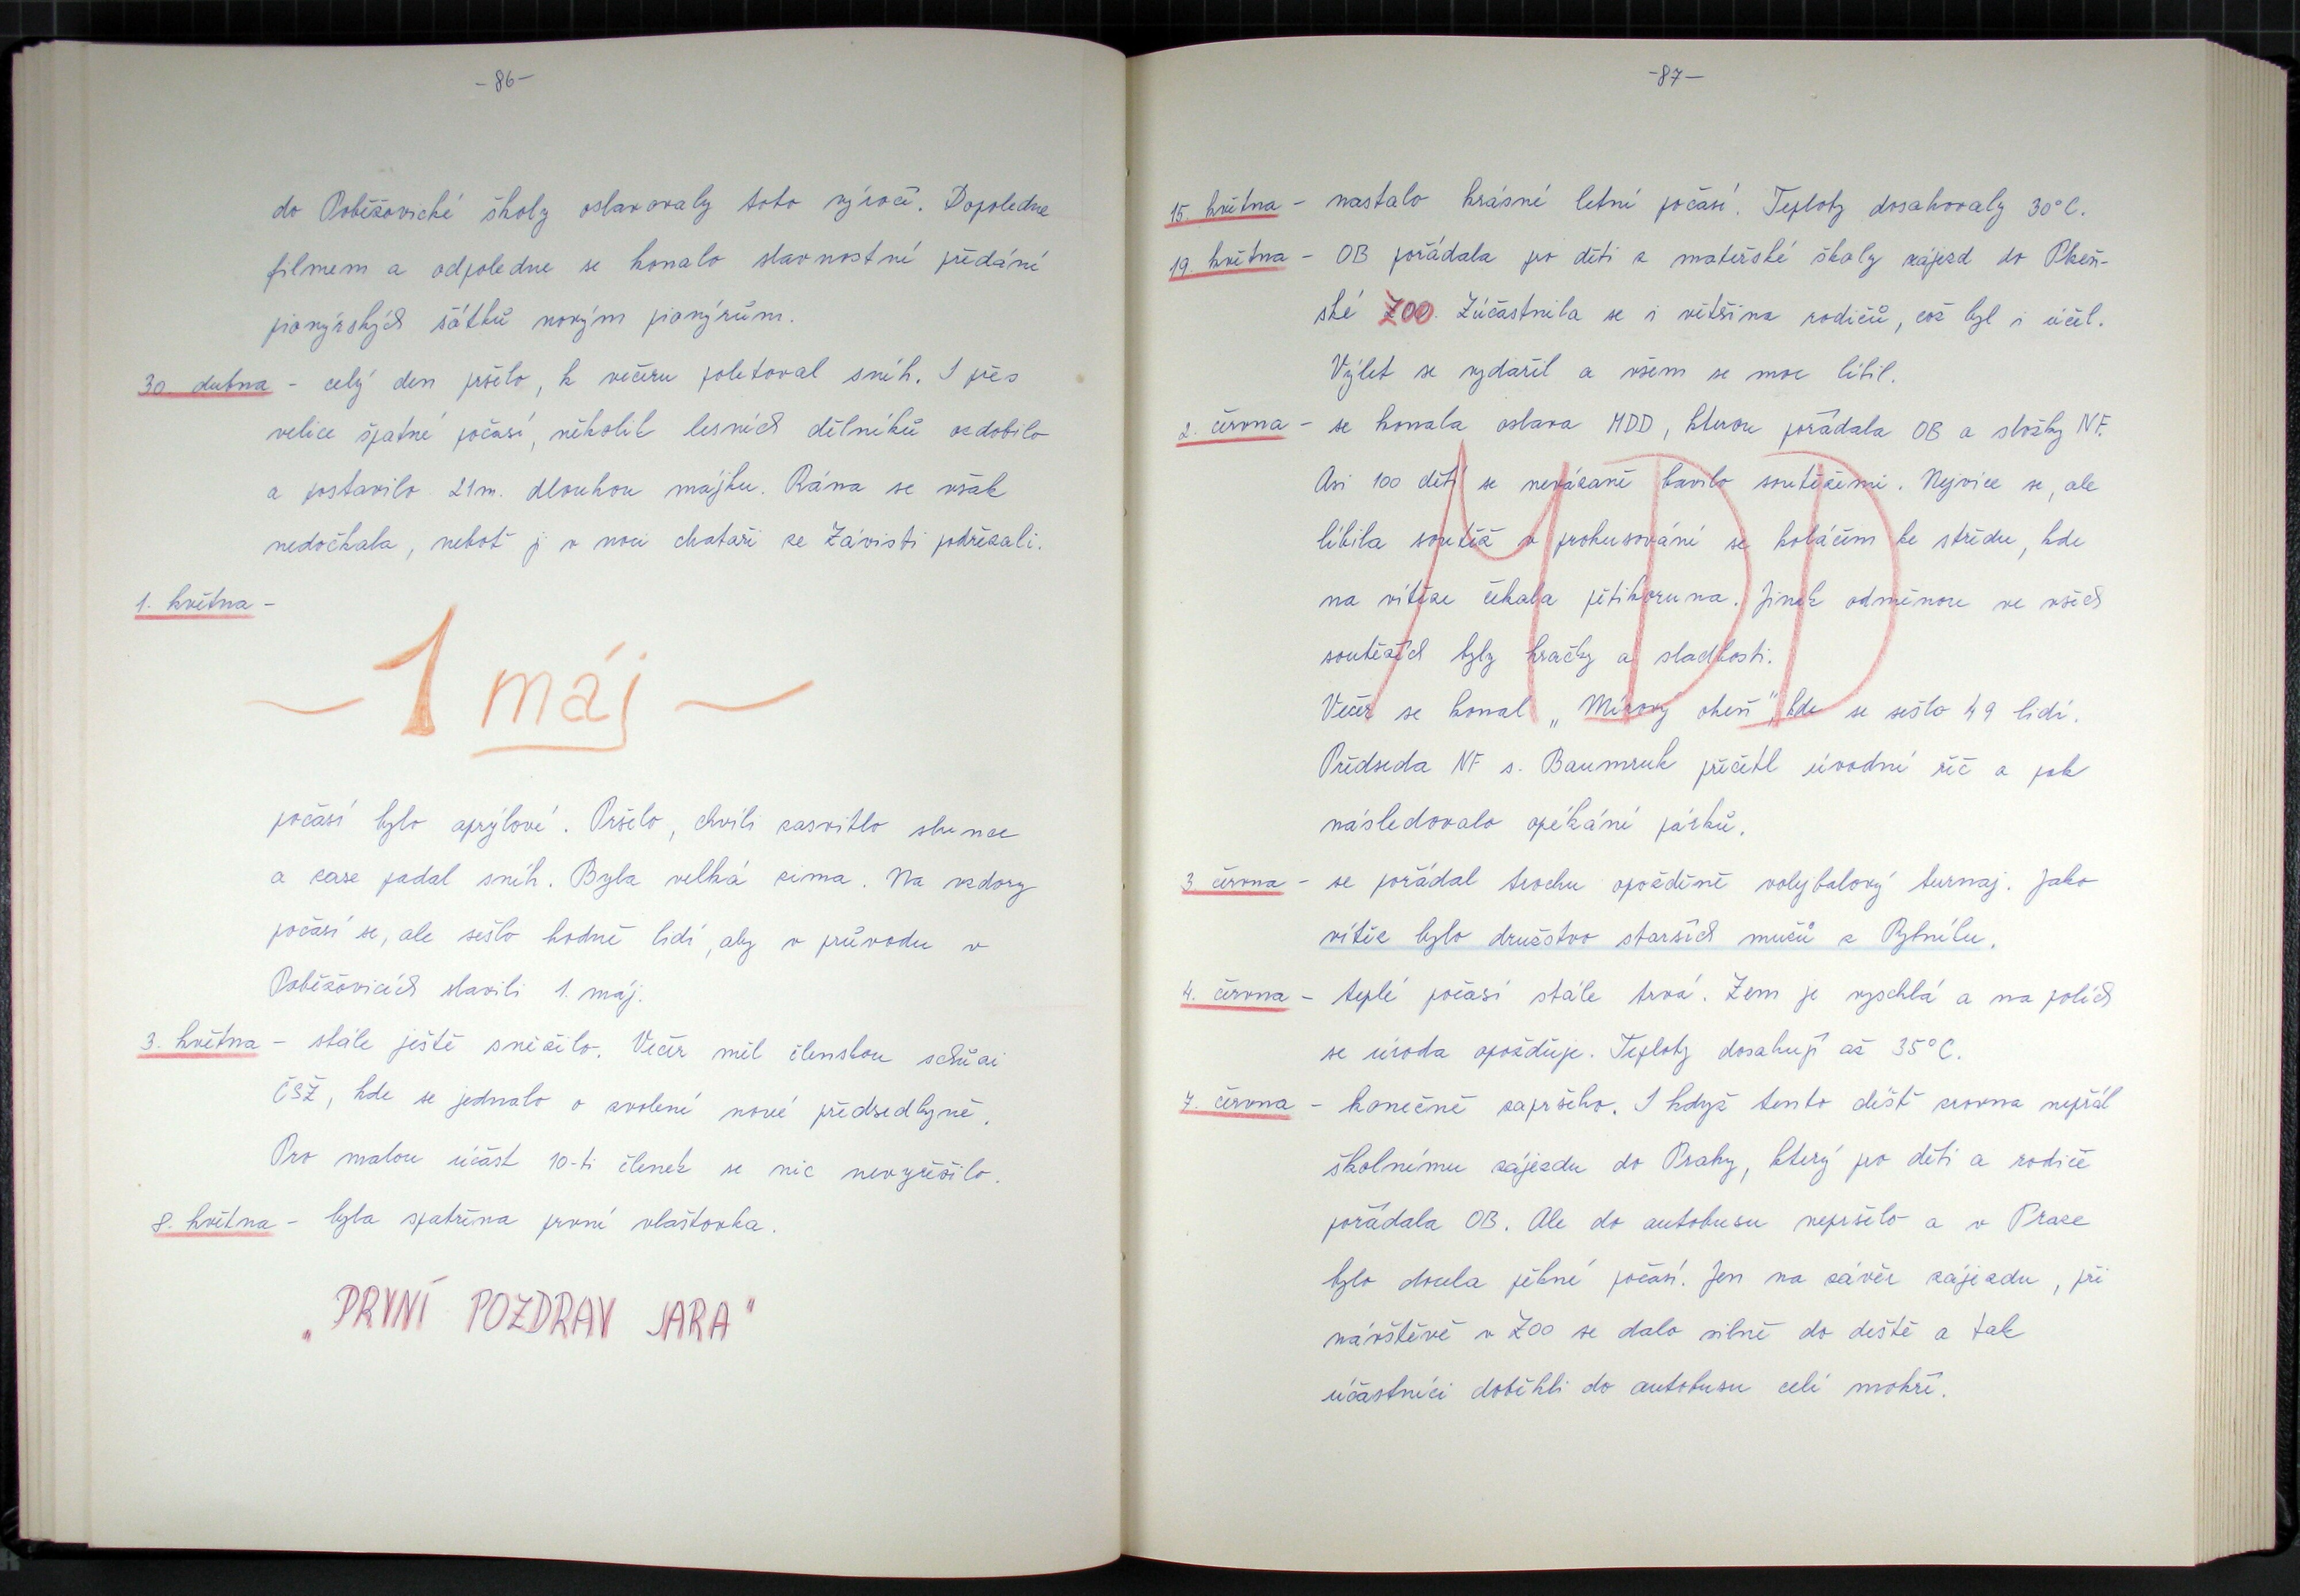 -86-
do Poběžovické školy oslavovaly toto výročí. Dopoledne
filmem a odpoledne se konalo slavnostní předání
pionýrských šátků novým pionýrům.
30. dubna - celý den pršelo, k večeru poletoval sníh. I přes
velice špatné počasí, několik lesních dělníků ozdobilo
a postavilo 21m. dlouhou májku. Rána se však
nedočkala, neboť ji v noci chataři ze Závisti podřezali.
1. května -
~ 1 máj ~
počasí bylo aprýlové. Pršelo, chvíli zasvitlo slunce
a zase padal sníh. Byla velká zima. Na vzdory
počasí se, ale sešlo hodně lidí, aby v průvodu v
Poběžovicích slavili 1. máj.
3. května - stále ještě sněžilo. Večer měl členskou schůzi
ČSŽ, kde se jednalo o zvolení nové předsedkyně.
Pro malou účast 10-ti členek se nic nevyřešilo.
8. května - byla spatřena první vlaštovka.
„PRVNÍ POZDRAV JARA"
-87-
15. května - nastalo krásné letní počasí. Teploty dosahovaly 30°C.
19. května - OB pořádala pro děti z mateřské školy zájezd do Plzeň-
ské ZOO. Zúčastnila se i většina rodičů, což byl i účel.
Výlet se vydařil a všem se moc líbil.
2. června - se konala oslava MDD, kterou pořádala OB a složky NF.
MDD
Asi 100 dětí se nevázaně bavilo soutěžemi. Nejvíce se, ale
líbila soutěž v prokusování se koláčem ke středu, kde
na vítěze čekala pětikoruna. Jinak odměnou ve všech
soutěžích byly hračky a sladkosti.
Večer se konal „Mírový oheň", kde se sešlo 49 lidí.
Předseda NF s. Baumruk přečetl úvodní řeč a pak
následovalo opékání párků.
3. června - se pořádal trochu opožděně volejbalový turnaj. Jako
vítěz bylo družstvo starších mužů z Rybníku.
4. června - teplé počasí stále trvá. Zem je vyschlá a na polích
se úroda opožďuje. Teploty dosahují až 35°C.
7. června - konečně zapršelo. I když tento déšť zrovna nepřál
školnímu zájezdu do Prahy, který pro děti a rodiče
pořádala OB. Ale do autobusu nepršelo a v Praze
bylo docela pěkné počasí. Jen na závěr zájezdu, při
návštěvě v ZOO se dalo silně do deště a tak
účastníci doběhli do autobusu celí mokří.